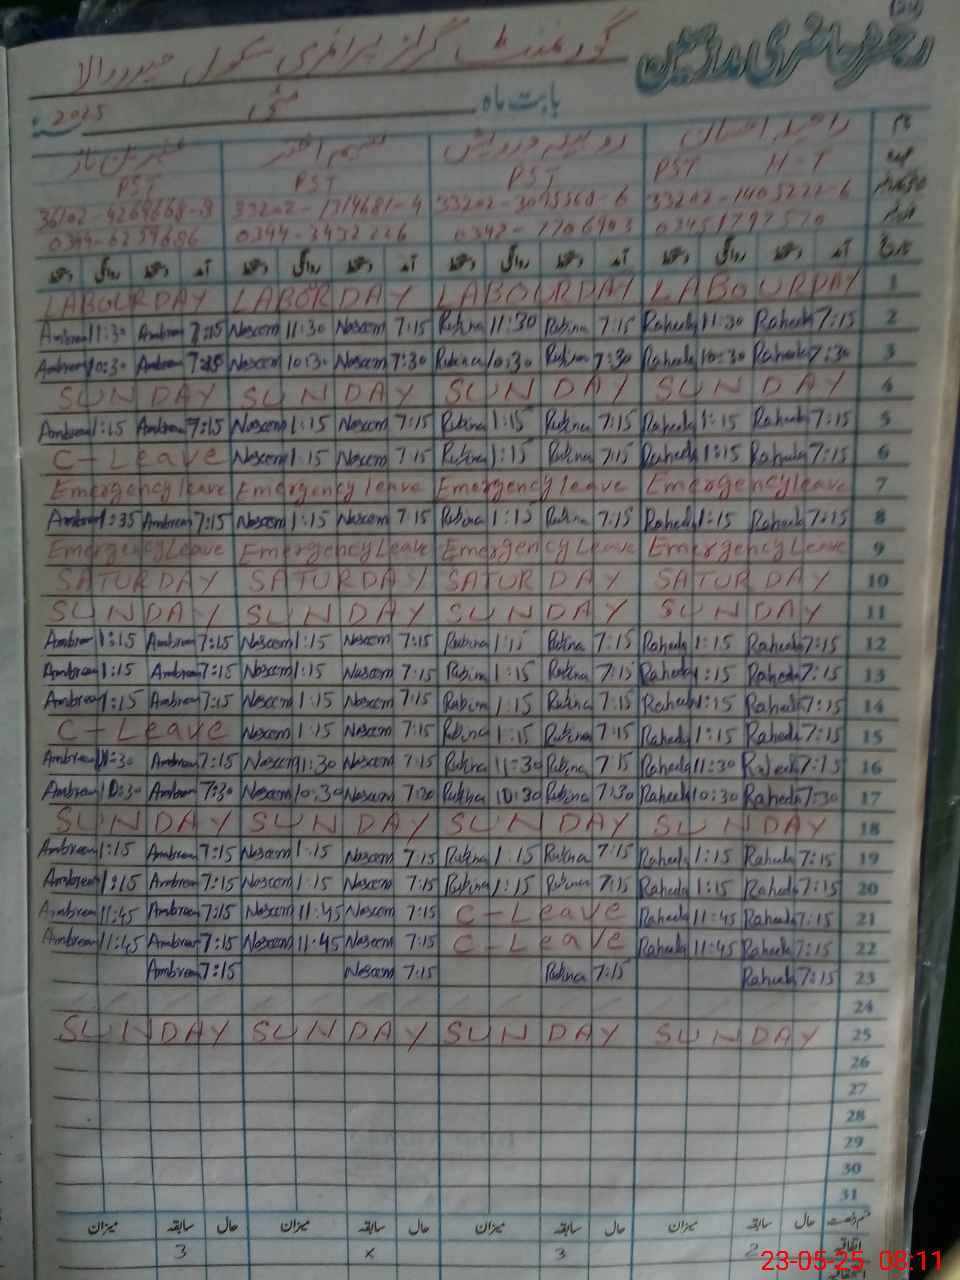 رجسٹر حاضری مدرسین
گورنمنٹ گرلز پرائمری سکول حیدر والا
بابت ماہ مئی 2025
نام
عہدہ PST H-T PST PST PST
33202-1405222-6 33202-3095568-6 33202-1319681-4 36102-4269668-8
03451797570 0342-7706903 0344-3452226 0344-6259686
تاریخ آمد دستخط روانگی دستخط آمد دستخط روانگی دستخط آمد دستخط روانگی دستخط آمد دستخط روانگی دستخط
LABOUR DAY LABOR DAY LABOUR DAY LABOUR DAY 1
Ambreen 11:30 Ambreen 7:15 Naseem 11:30 Naseem 7:15 Rubina 11:30 Rubina 7:15 Raheeda 11:30 Raheeda 7:15 2
Ambreen 10:30 Ambreen 7:30 Naseem 10:30 Naseem 7:30 Rubina 10:30 Rubina 7:30 Raheeda 10:30 Raheeda 7:30 3
SUNDAY SUNDAY SUNDAY SUNDAY 4
Ambreen 1:15 Ambreen 7:15 Naseem 1:15 Naseem 7:15 Rubina 1:15 Rubina 7:15 Raheeda 1:15 Raheeda 7:15 5
C-Leave Naseem 1:15 Naseem 7:15 Rubina 1:15 Rubina 7:15 Raheeda 1:15 Raheeda 7:15 6
Emergency leave Emergency leave Emergency leave Emergency leave 7
Ambreen 1:35 Ambreen 7:15 Naseem 1:15 Naseem 7:15 Rubina 1:15 Rubina 7:15 Raheeda 1:15 Raheeda 7:15 8
Emergency Leave Emergency Leave Emergency Leave Emergency Leave 9
SATURDAY SATURDAY SATURDAY SATURDAY 10
SUNDAY SUNDAY SUNDAY SUNDAY 11
Ambreen 1:15 Ambreen 7:15 Naseem 1:15 Naseem 7:15 Rubina 1:15 Rubina 7:15 Raheeda 1:15 Raheeda 7:15 12
Ambreen 1:15 Ambreen 7:15 Naseem 1:15 Naseem 7:15 Rubina 1:15 Rubina 7:15 Raheeda 1:15 Raheeda 7:15 13
Ambreen 1:15 Ambreen 7:15 Naseem 1:15 Naseem 7:15 Rubina 1:15 Rubina 7:15 Raheeda 1:15 Raheeda 7:15 14
C-Leave Naseem 1:15 Naseem 7:15 Rubina 1:15 Rubina 7:15 Raheeda 1:15 Raheeda 7:15 15
Ambreen 11:30 Ambreen 7:15 Naseem 11:30 Naseem 7:15 Rubina 11:30 Rubina 7:15 Raheeda 11:30 Raheeda 7:15 16
Ambreen 10:30 Ambreen 7:30 Naseem 10:30 Naseem 7:30 Rubina 10:30 Rubina 7:30 Raheeda 10:30 Raheeda 7:30 17
SUNDAY SUNDAY SUNDAY SUNDAY 18
Ambreen 1:15 Ambreen 7:15 Naseem 1:15 Naseem 7:15 Rubina 1:15 Rubina 7:15 Raheeda 1:15 Raheeda 7:15 19
Ambreen 1:15 Ambreen 7:15 Naseem 1:15 Naseem 7:15 Rubina 1:15 Rubina 7:15 Raheeda 1:15 Raheeda 7:15 20
Ambreen 11:45 Ambreen 7:15 Naseem 11:45 Naseem 7:15 C-Leave Raheeda 11:45 Raheeda 7:15 21
Ambreen 11:45 Ambreen 7:15 Naseem 11:45 Naseem 7:15 C-Leave Raheeda 11:45 Raheeda 7:15 22
Ambreen 7:15 Naseem 7:15 Rubina 7:15 Raheeda 7:15 23
24
SUNDAY SUNDAY SUNDAY SUNDAY 25
26
27
28
29
30
31
حال سابقہ میزان حال سابقہ میزان حال سابقہ میزان حال سابقہ میزان
اتفاقیہ 2 3 x 3
23-05-25 08:11